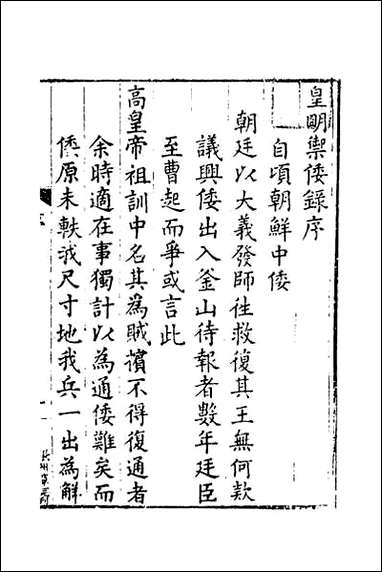 皇明禦倭錄序
自頃朝鮮中倭
朝廷以大義發師徃救復其王無何欵
議興倭出入釜山待報者數年廷臣
至曹起而爭或言此
高皇帝祖訓中名其為賊擯不得復通者
余時適在事獨計以為通倭難矣而
倭原未軼我尺寸地我兵一出為解